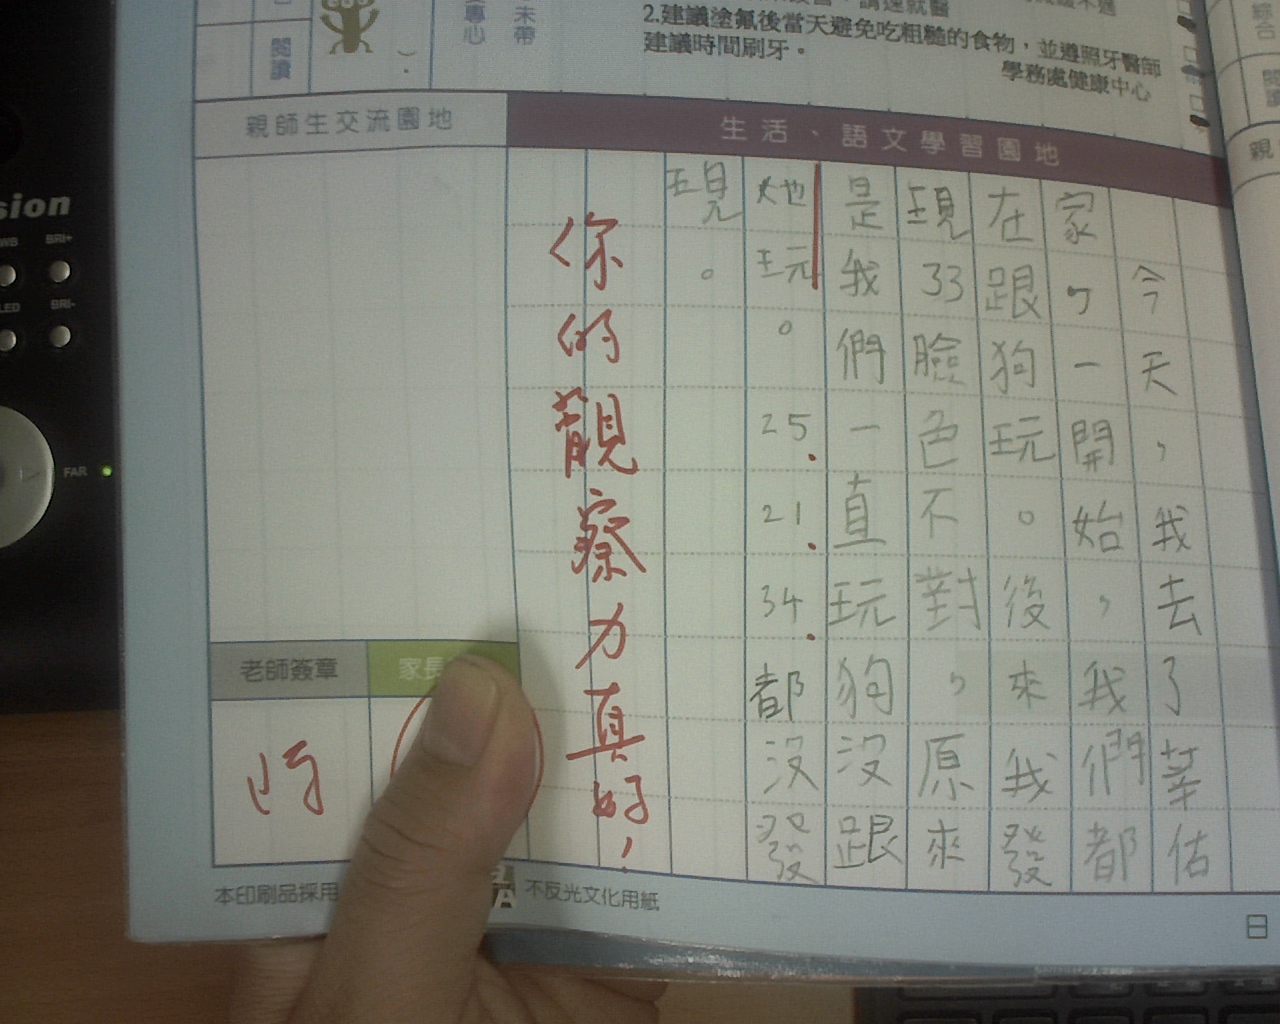 sion
WB
BRI+
LED
BRI-
FAR
閱讀
專心
未帶
2.建議塗氟後當天避免吃粗糙的食物，並遵照牙醫師
建議時間刷牙。
學務處健康中心
綜合
親師生交流園地
生活、語文學習園地
今天，我去了莘佑
家，一開始，我們都
在跟狗玩。後來我發
現33臉色不對，原來
是我們一直玩狗沒跟
她玩。25.21.34.都沒發
現。
你的觀察力真好！
老師簽章
家長
本印刷品採用
不反光文化用紙
日